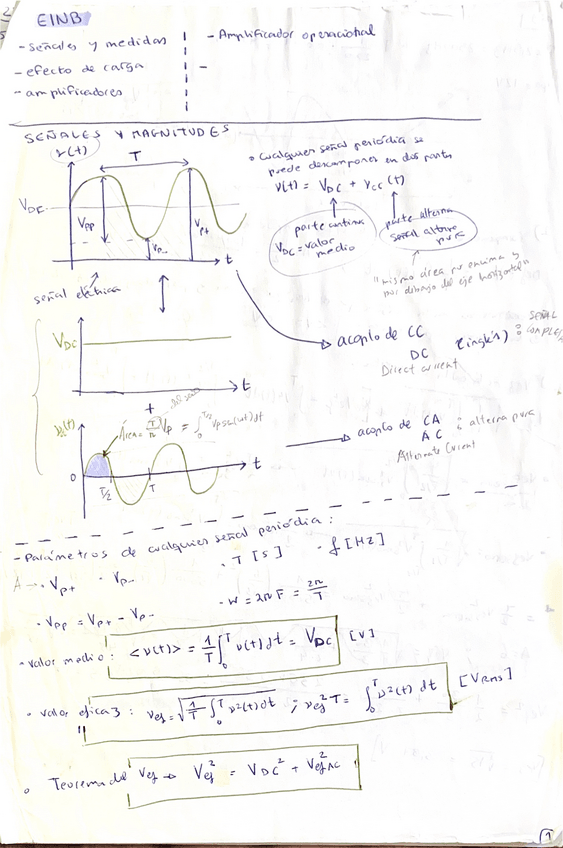 EINB
- señales y medidas
- Amplificador operacional
- efecto de carga
-
- amplificadores
SEÑALES Y MAGNITUDES
v(t)
T
VDC
Vpp
Vp-
Vp+
t
señal eléctrica
• cualquier señal periódica se
puede descomponer en dos partes
v(t) = VDC + vCC(t)
parte continua
VDC = valor
medio
parte alterna
señal alterna
pura
"mismo área por encima y
por debajo del eje horizontal"
VDC
t
acoplo de CC
DC (inglés)
Direct current
SEÑAL
COMPLETA
+
Área = T/π Vp = ∫₀^T/2 Vp sen(wt) dt
0
T/2
T
t
acoplo de CA
AC
alterna pura
Alternate Current
- Parámetros de cualquier señal periódica:
A → • Vp+ • Vp-
• T [s] • f [Hz]
• Vpp = Vp+ - Vp-
• w = 2πF = 2π/T
• valor medio: <v(t)> = 1/T ∫₀^T v(t) dt = VDC [V]
• valor eficaz: vef = √(1/T ∫₀^T v²(t) dt) ; vef² T = ∫₀^T v²(t) dt [VRMS]
• Teorema del Vef → Vef² = VDC² + VefAC²
1